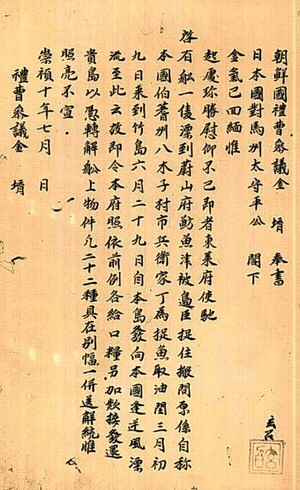 朝鮮國禮曹參議金 堉 奉書
日本國對馬州太守平公 閤下
金氣已回緬惟
起處珎勝慰仰不已即者東萊府使馳
啓有舩一隻漂到蔚山府魴魚津被邊臣捉住搬問原係自称
本國伯耆州八木子村市兵衛家丁為捉魚取油閏三月初
九日来到竹島六月二十九日自本島發向本國逢逆風漂
流至此云故即令本府照依前例各給口糧另加欵接發還
貴島以憑轉解舩上物件凡二十二種具在別幅一併送解統惟
照亮不宣
崇禎十年七月 日
禮曹參議金 堉